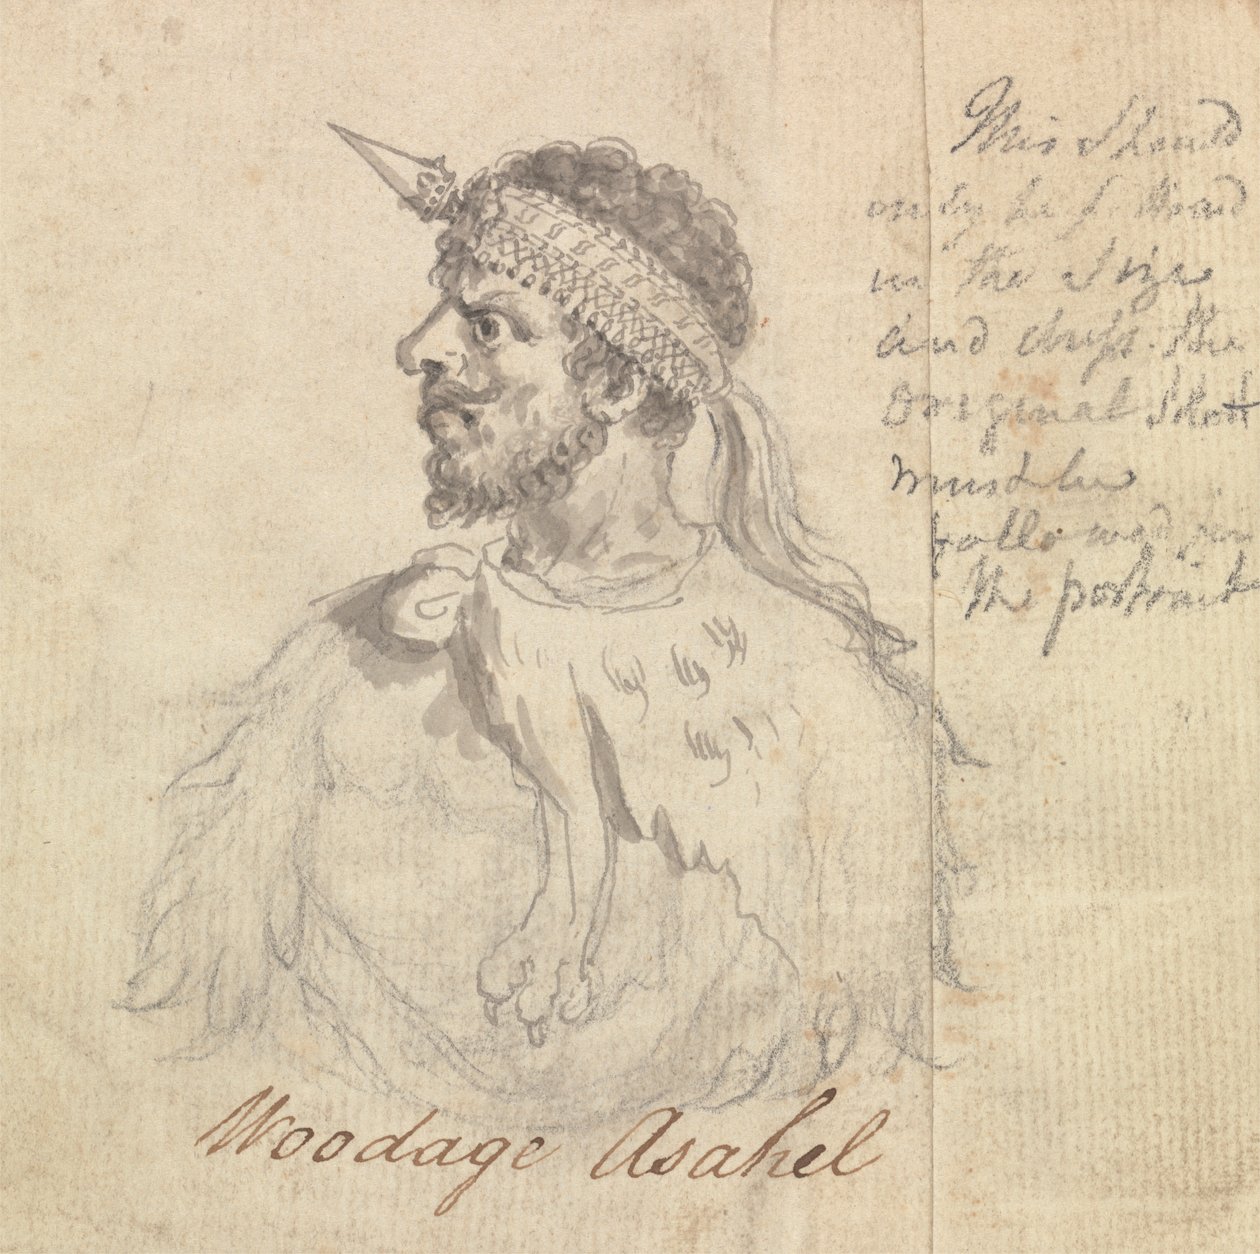 This Should
only be followd
in the Size
and dress. the
Original Sketch
must be
followed in
the portrait
Woodage Asahel